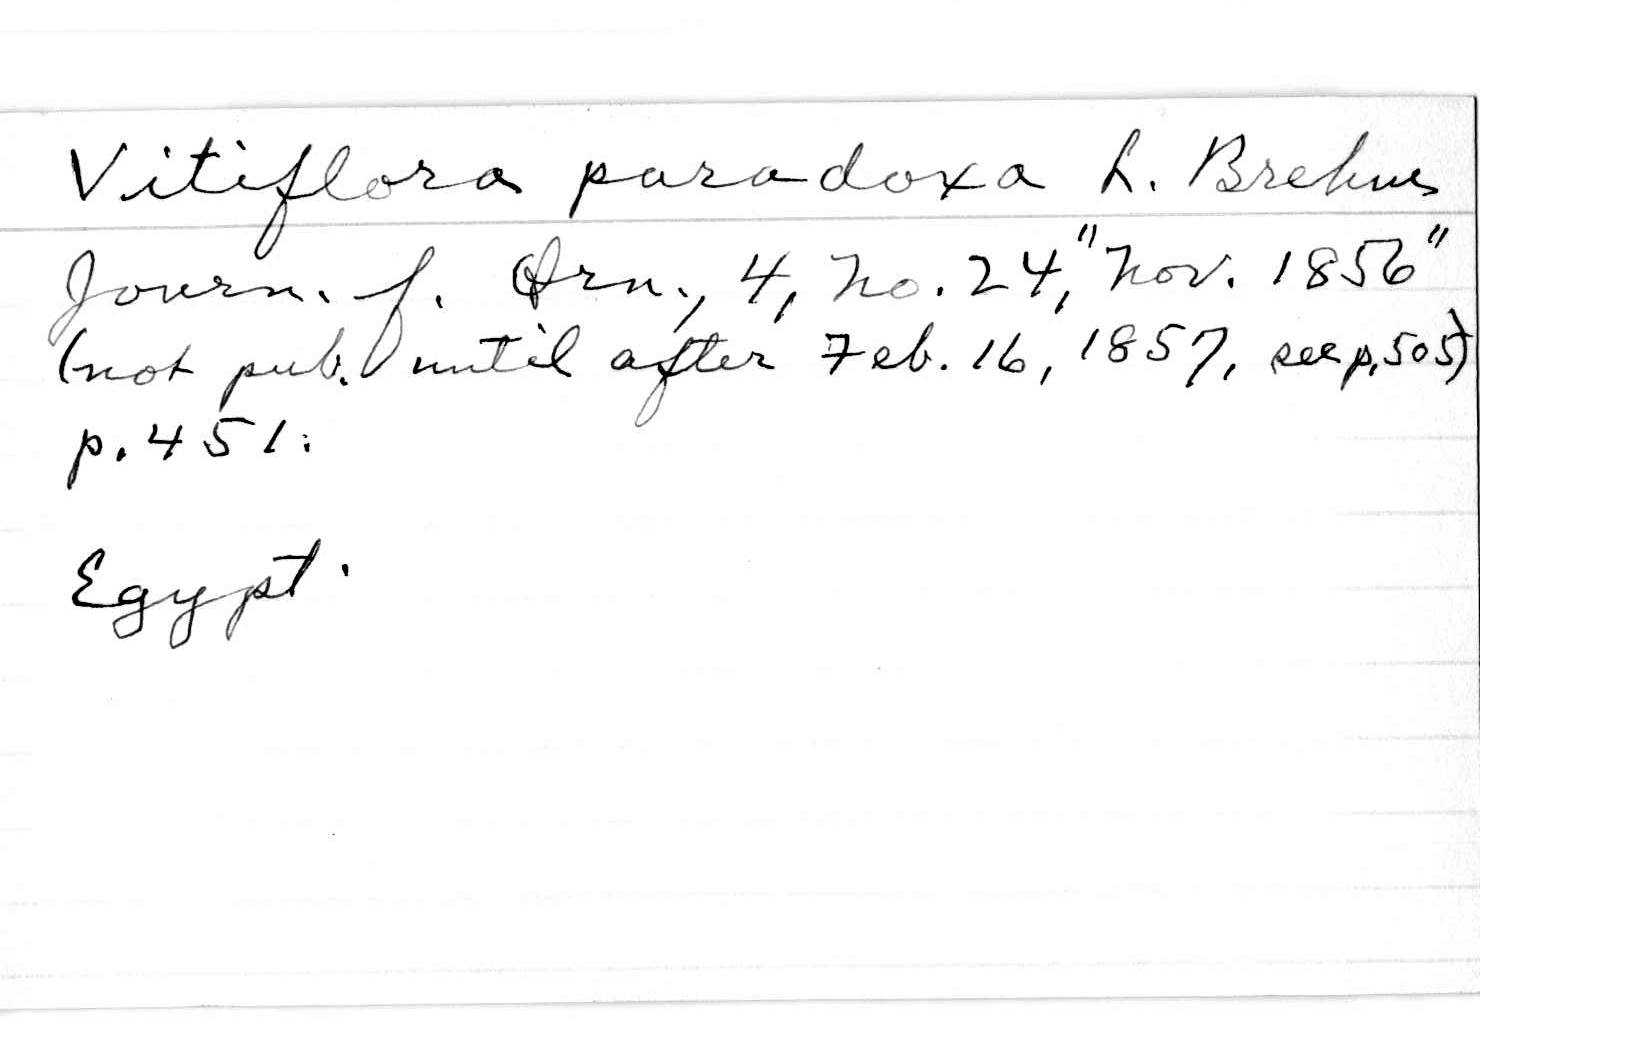 Vitiflora paradoxa L. Brehm
Journ. f. Orn., 4, No. 24, "Nov. 1856"
(not pub. until after Feb. 16, 1857, see p. 505)
p. 451.
Egypt.